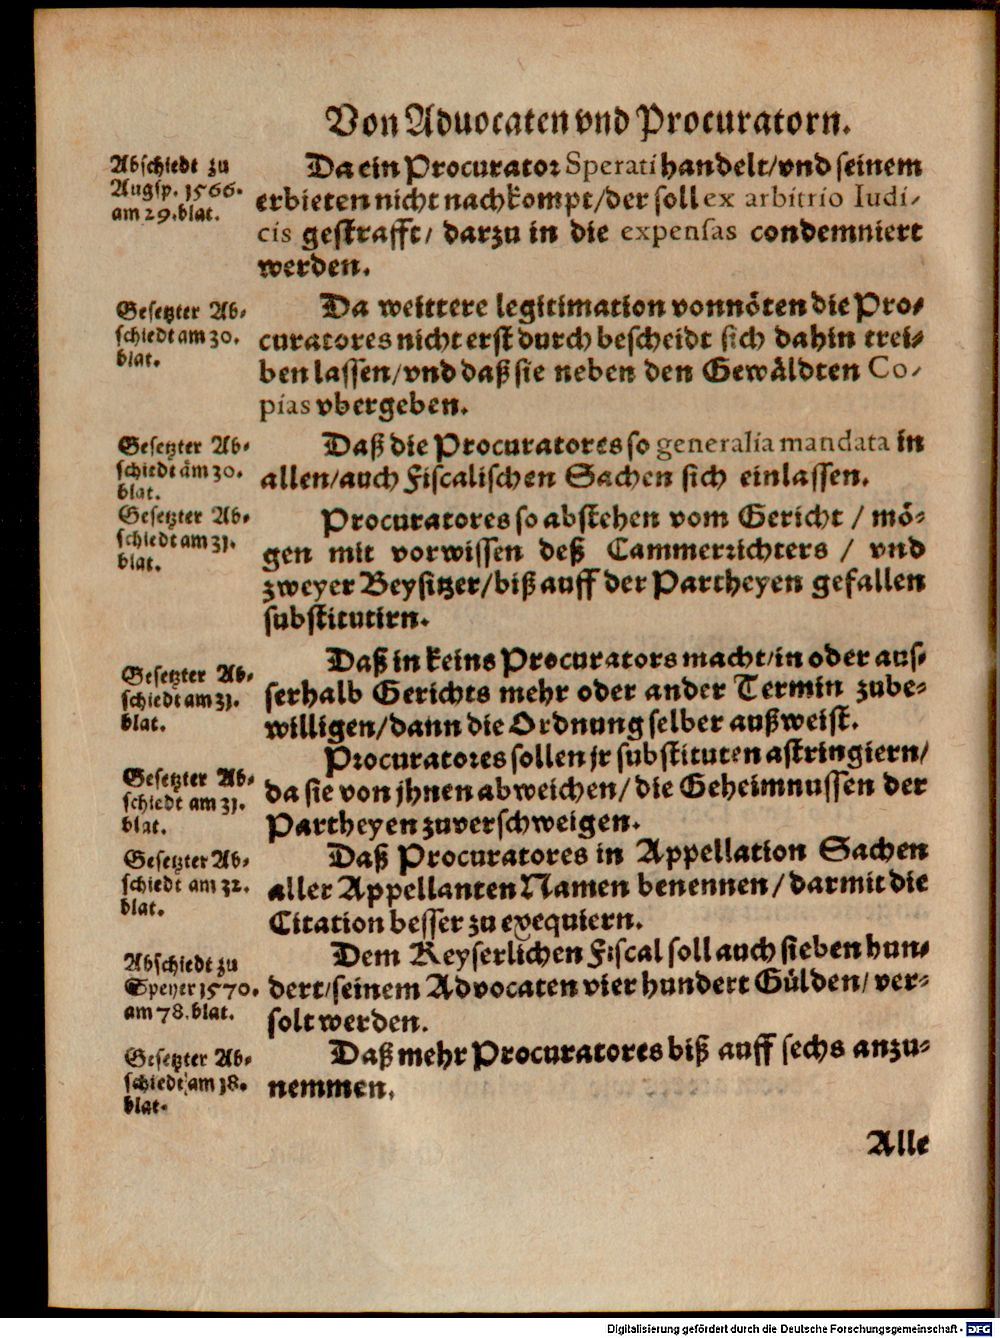 Von Aduocaten vnd Procuratorn.
Abschiedt zu
Augsp. 1566.
am 29. blat.
Da ein Procurator Sperati handelt/vnd seinem
erbieten nicht nachkompt/der soll ex arbitrio Iudi-
cis gestrafft/ darzu in die expensas condemniert
werden.
Gesetzter Ab-
schiedt am 30.
blat.
Da weittere legitimation vonnöten die Pro-
curatores nicht erst durch bescheidt sich dahin trei-
ben lassen/vnd daß sie neben den Gewäldten Co-
pias vbergeben.
Gesetzter Ab-
schiedt am 30.
blat.
Daß die Procuratores so generalia mandata in
allen/auch Fiscalischen Sachen sich einlassen.
Gesetzter Ab-
schiedt am 31.
blat.
Procuratores so abstehen vom Gericht / mö-
gen mit vorwissen deß Cammerrichters / vnd
zweyer Beysitzer/biß auff der Partheyen gefallen
substitutirn.
Gesetzter Ab-
schiedt am 31.
blat.
Daß in keins Procurators macht/in oder aus-
serhalb Gerichts mehr oder ander Termin zube-
willigen/dann die Ordnung selber außweist.
Gesetzter Ab-
schiedt am 31.
blat.
Procuratores sollen jr substituten astringiern/
da sie von jhnen abweichen/die Geheimnussen der
Partheyen zuverschweigen.
Gesetzter Ab-
schiedt am 32.
blat.
Daß Procuratores in Appellation Sachen
aller Appellanten Namen benennen/darmit die
Citation besser zu exequiern.
Abschiedt zu
Speyer 1570.
am 78. blat.
Dem Keyserlichen Fiscal soll auch sieben hun-
dert/seinem Advocaten vier hundert Gülden/ ver-
solt werden.
Gesetzter Ab-
schiedt am 38.
blat.
Daß mehr Procuratores biß auff sechs anzu-
nemmen.
Alle
Digitalisierung gefördert durch die Deutsche Forschungsgemeinschaft - DFG